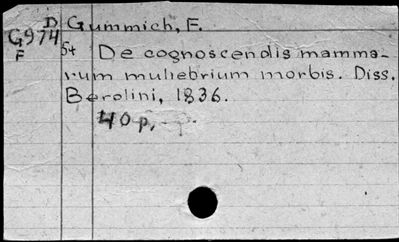 D Gummich, F.
G974
F
St De cognoscendis mamma-
rum muliebrium morbis. Diss.
Berolini, 1836.
40 p.